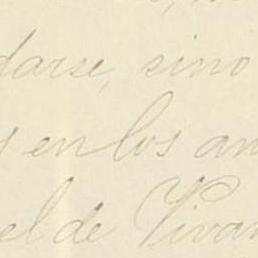 darse, sino
y en los an
el de Vivan